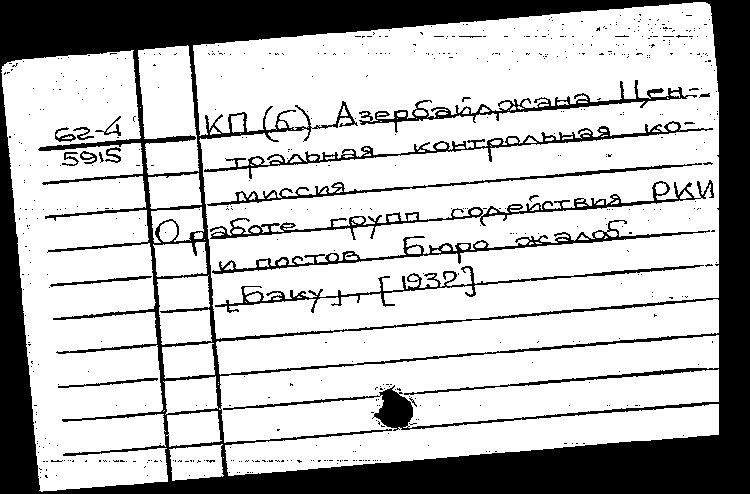 62-4
5915
КП(б) Азербайджана. Цен-
тральная контрольная ко-
миссия.
О работе групп содействия РКИ
и постов Бюро жалоб.
[Баку], [1932].